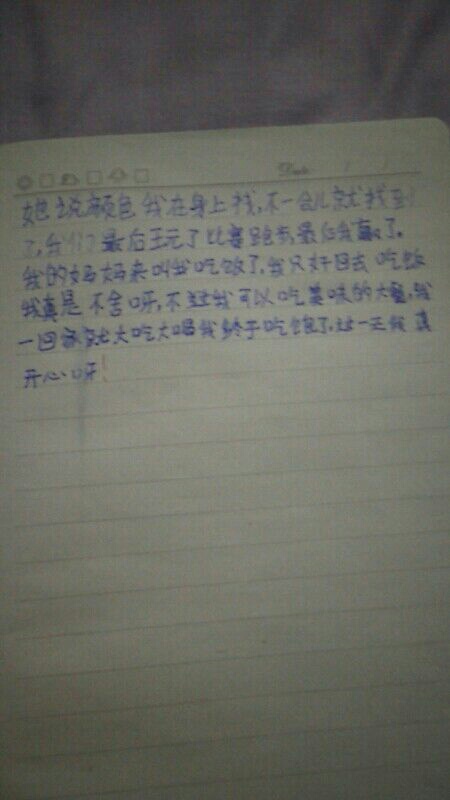 Date
她说颜色我在身上找,不一会儿就找到
了,我们最后玩了比赛跑步,最后我赢了。
我的妈妈来叫我吃饭了,我只好回去吃饭
我真是不舍呀,不过我可以吃美味的大餐,我
一回家就大吃大喝我终于吃饱了,这一天我真
开心呀!